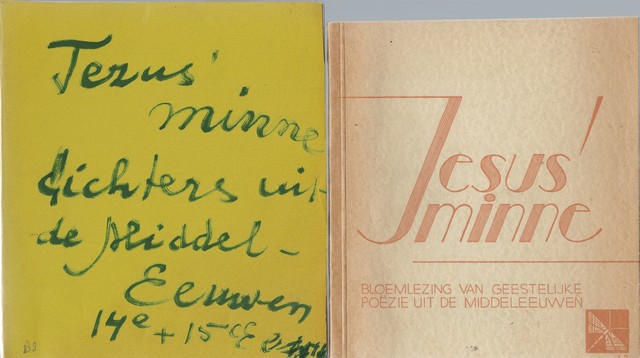 Jezus'
minne
dichters uit
de Middel-
Eeuwen
14e + 15e
B2
Jesus'
minne
BLOEMLEZING VAN GEESTELIJKE
POËZIE UIT DE MIDDELEEUWEN